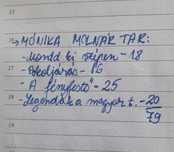 MÓNIKA MOLNÁR TAR:
- Mondd ki szépen - 18
- - 16
- A fényfestő - 25
- Legendák a magyar t. - 20
79